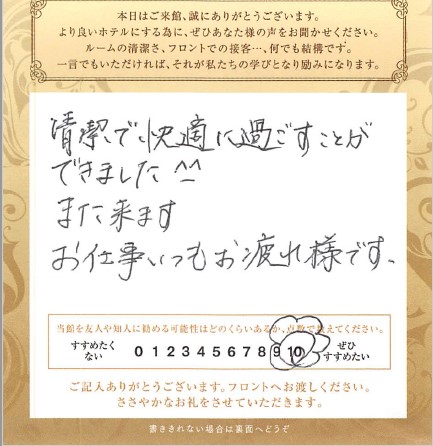 本日はご来館、誠にありがとうございます。
より良いホテルにする為に、ぜひあなた様の声をお聞かせください。
ルームの清潔さ、フロントでの接客…、何でも結構です。
一言でもいただければ、それが私たちの学びとなり励みになります。
清潔で快適に過ごすことが
できました^^
また来ます
お仕事いつもお疲れ様です。
当館を友人や知人に勧める可能性はどのくらいあるか、点数で教えてください。
すすめたくない 0 1 2 3 4 5 6 7 8 9 10 ぜひすすめたい
ご記入ありがとうございます。フロントへお渡しください。
ささやかなお礼をさせていただきます。
書ききれない場合は裏面へどうぞ